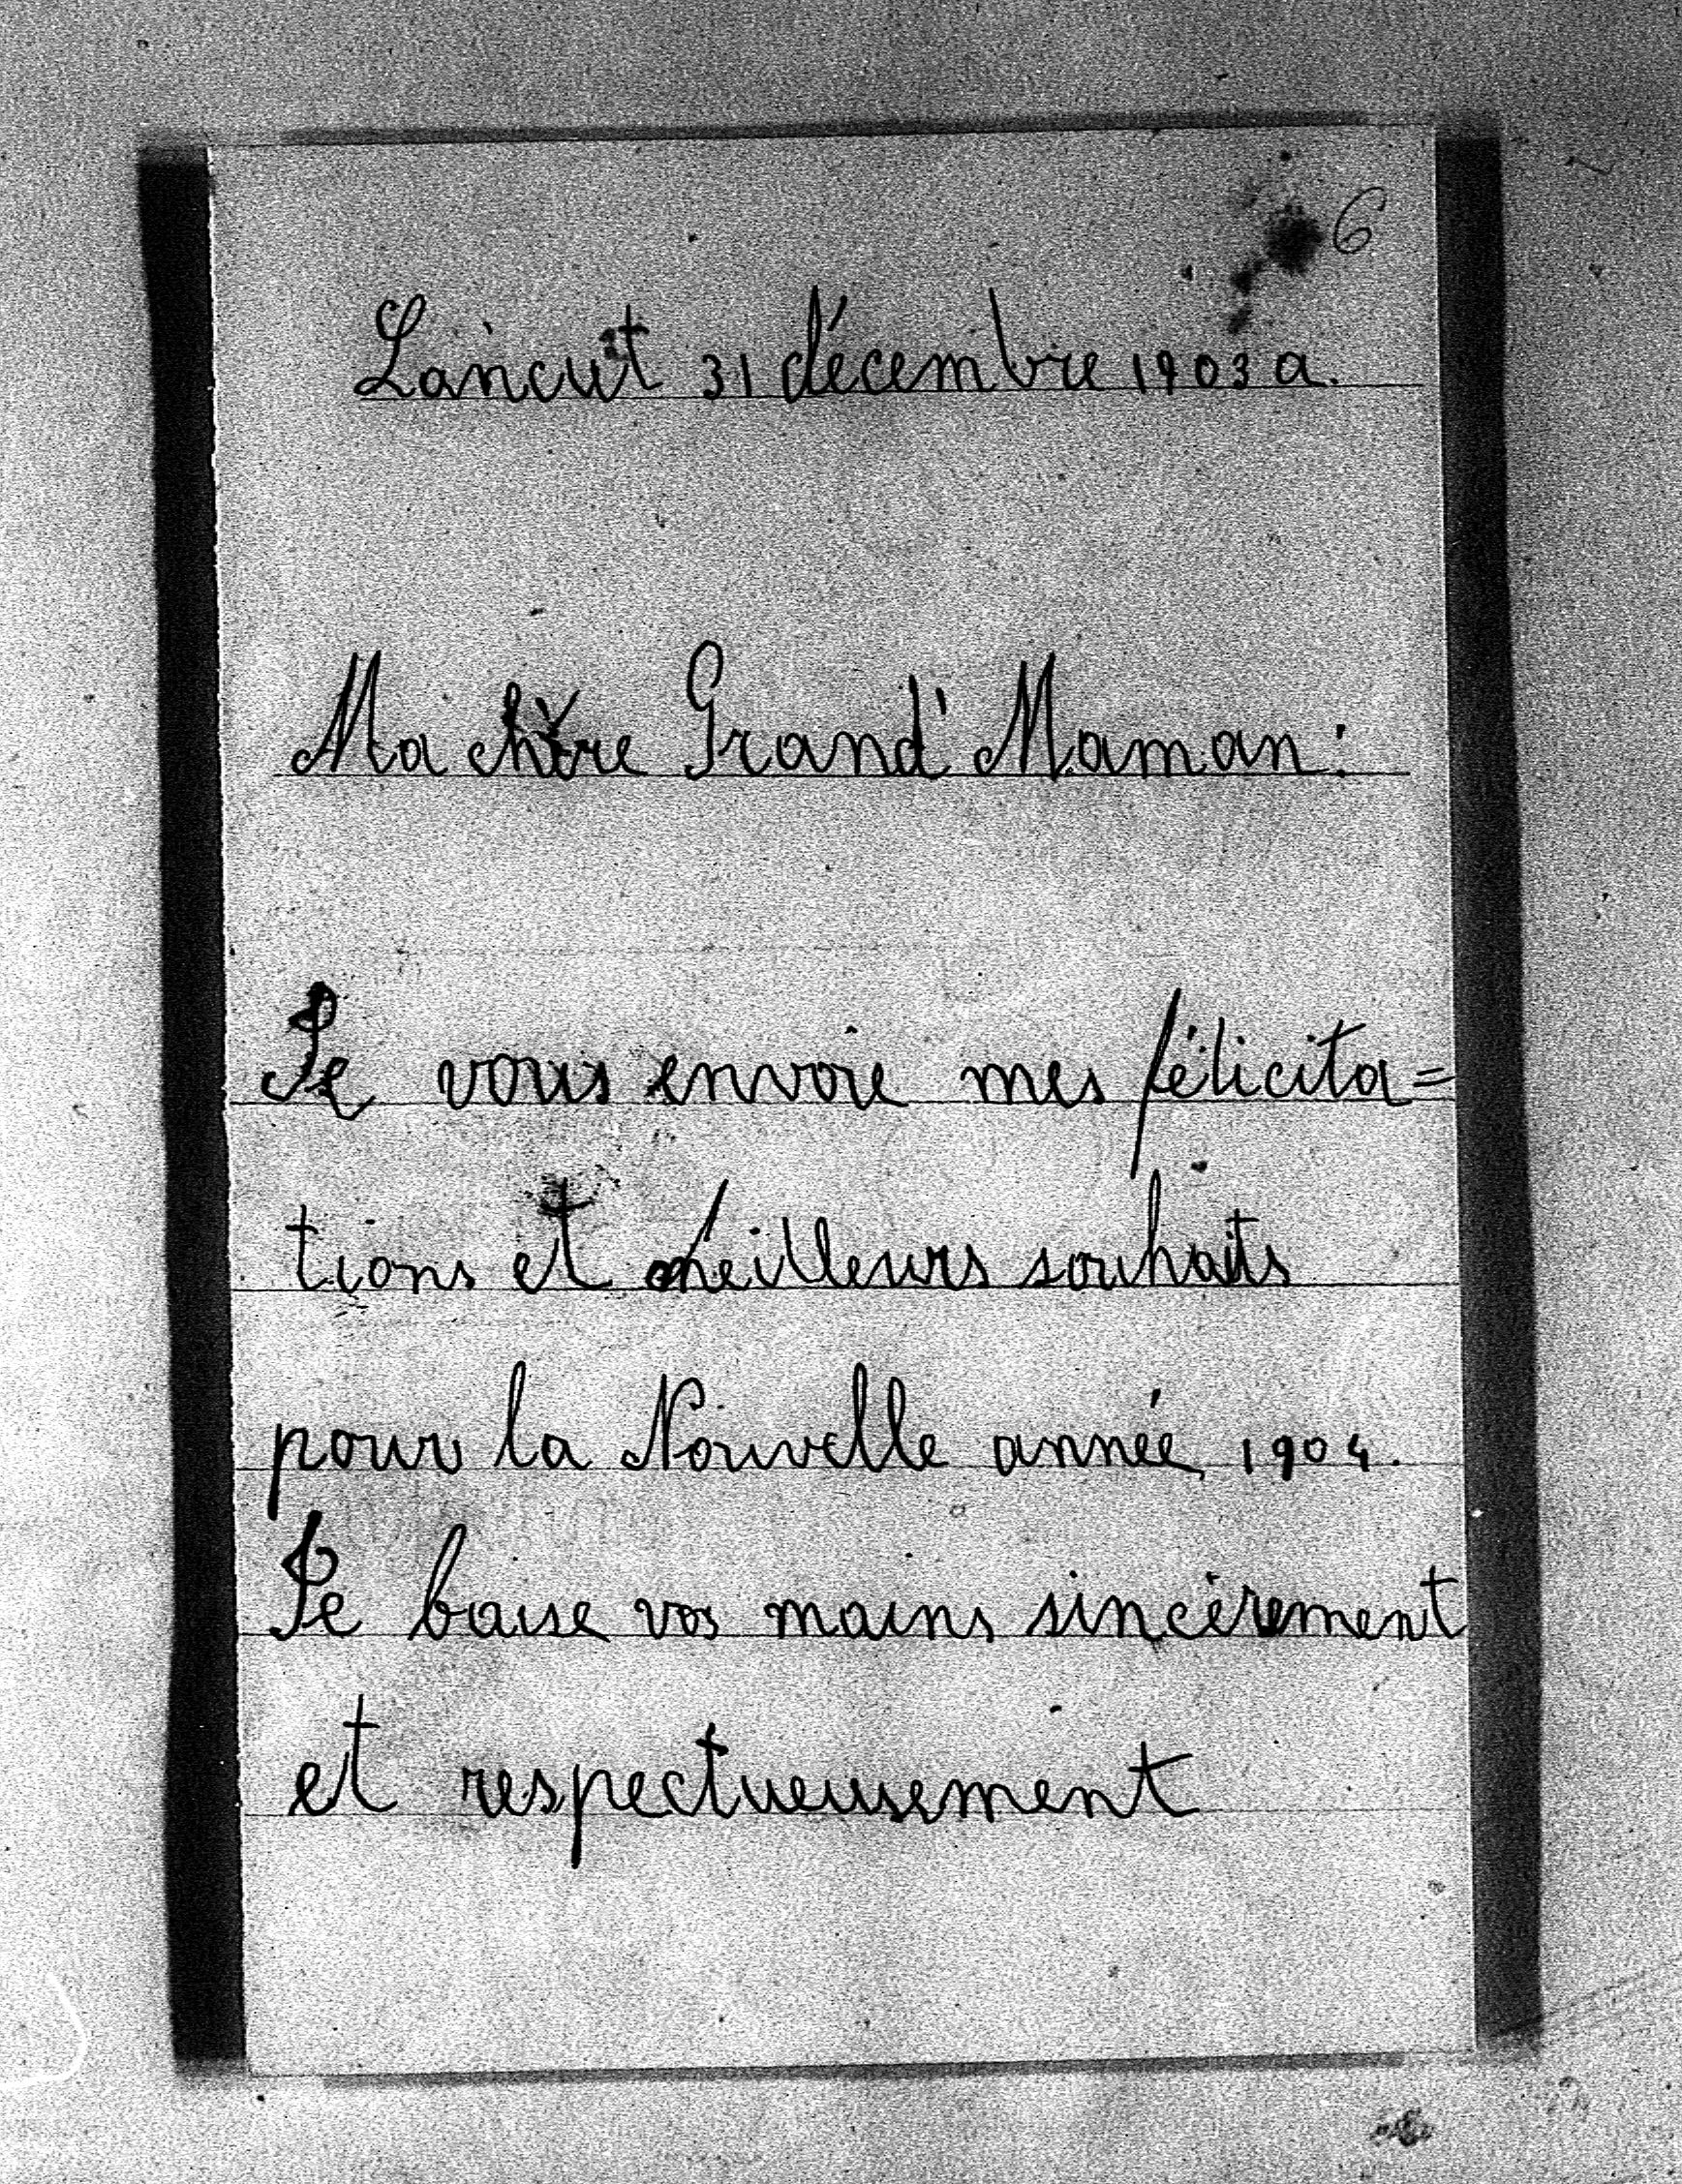 6
Lańcut 31 décembre 1903 a.
Ma chère Grand' Maman:
Je vous envoie mes félicita=
tions et meilleurs souhaits
pour la Nouvelle année 1904.
Je baise vos mains sincèrement
et respectueusement